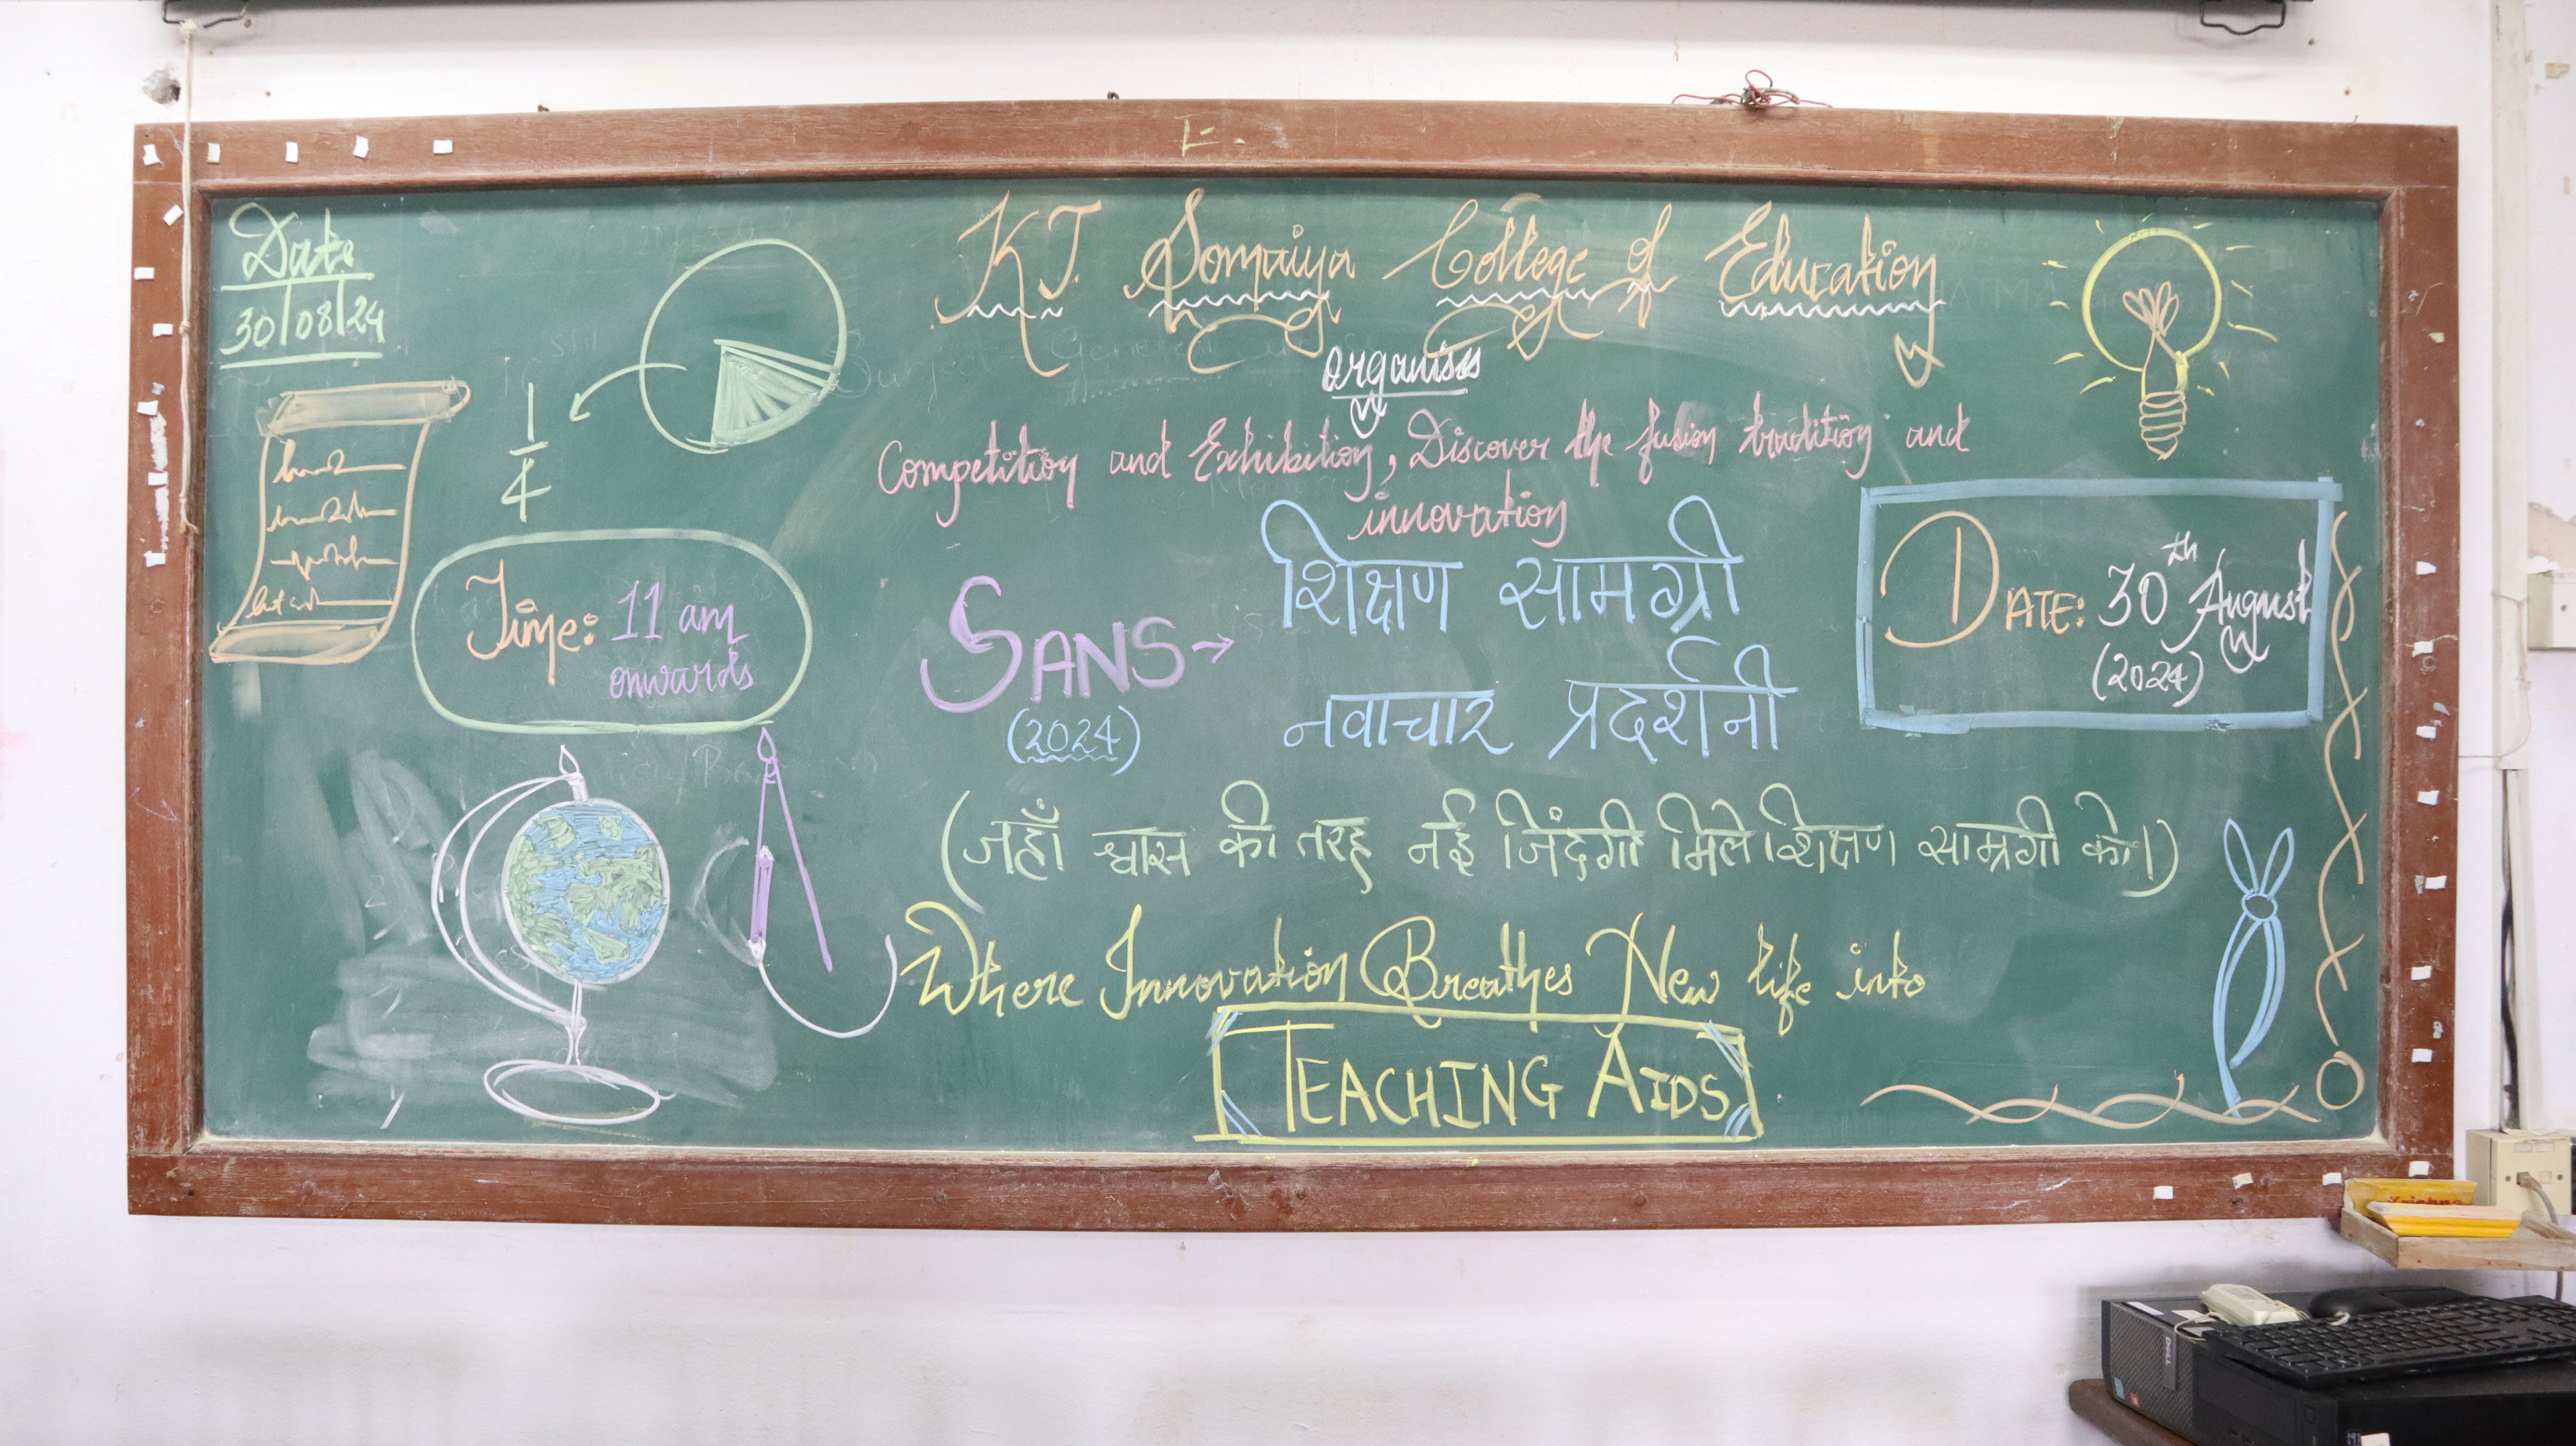 Date
30/08/24
KJ. Somaiya College of Education
organises
Competition and Exhibition, Discover the fusion tradition and
innovation
1
4
Time: 11 am
onwards
SANS→
(2024)
शिक्षण सामग्री
नवाचार प्रदर्शनी
DATE: 30th August
(2024)
(जहाँ श्वास की तरह नई जिंदगी मिले शिक्षण सामग्री को।)
Where Innovation Breathes New life into
TEACHING AIDS
DELL